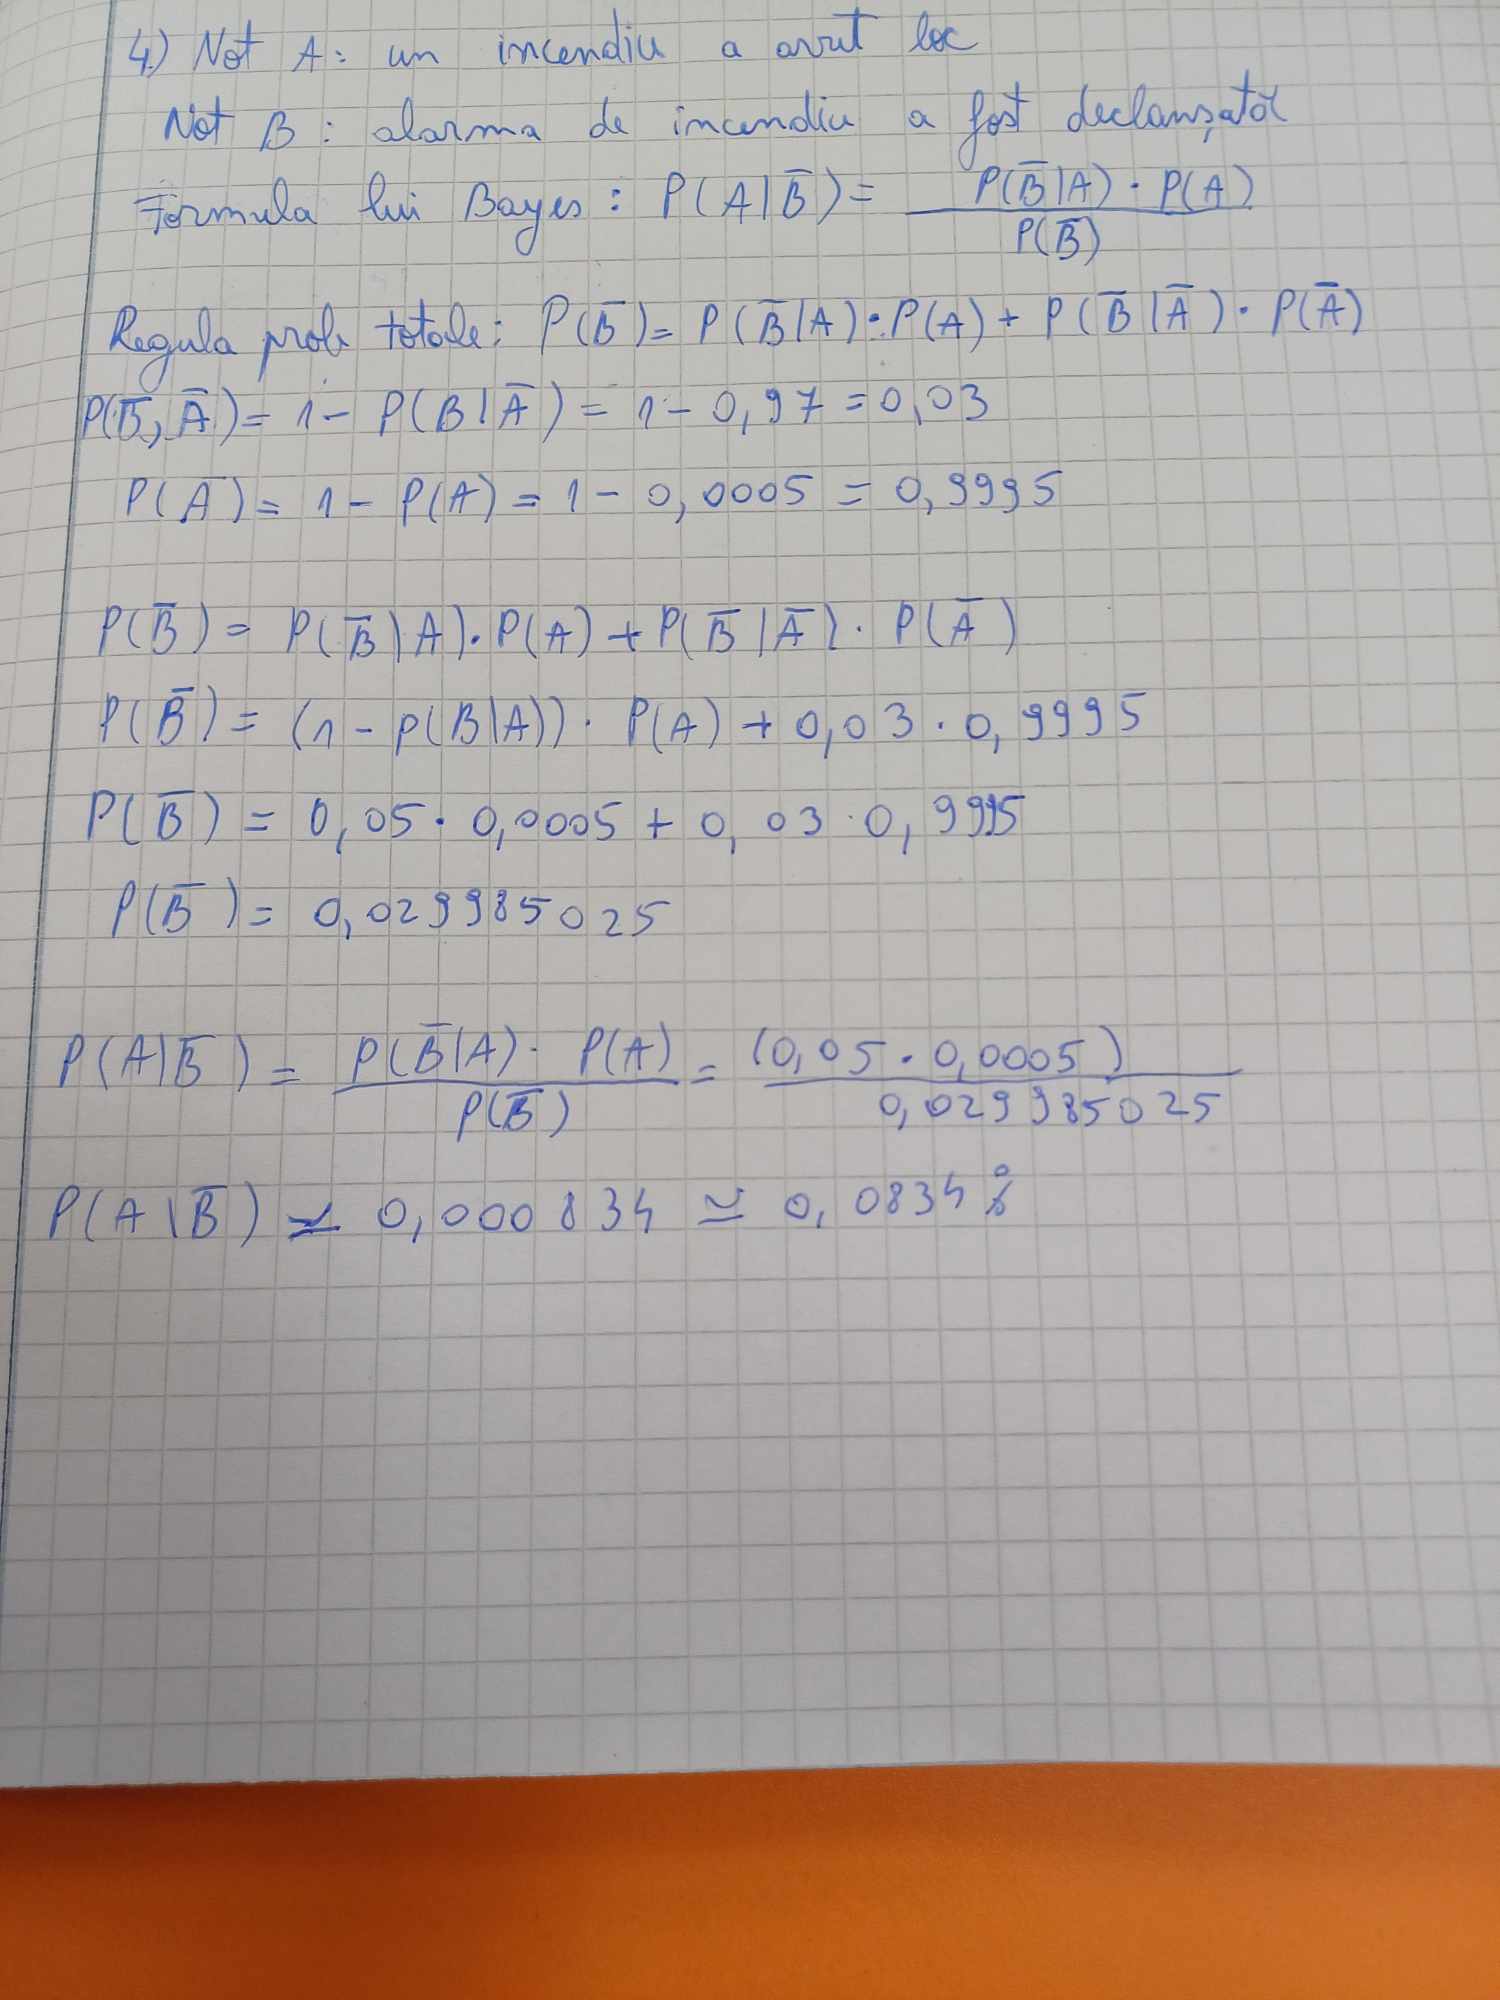 4) Not A: un incendiu a avut loc
Not B: alarma de incendiu a fost declanșată
Formula lui Bayes: P(A|B̅) = P(B̅|A) · P(A) / P(B̅)
Regula prob totale: P(B̅) = P(B̅|A) · P(A) + P(B̅|A̅) · P(A̅)
P(B̅, A̅) = 1 - P(B|A̅) = 1 - 0,97 = 0,03
P(A̅) = 1 - P(A) = 1 - 0,0005 = 0,9995
P(B̅) = P(B̅|A) · P(A) + P(B̅|A̅) · P(A̅)
P(B̅) = (1 - P(B|A)) · P(A) + 0,03 · 0,9995
P(B̅) = 0,05 · 0,0005 + 0,03 · 0,9995
P(B̅) = 0,029985025
P(A|B̅) = P(B̅|A) · P(A) / P(B̅) = (0,05 · 0,0005) / 0,029985025
P(A|B̅) ≃ 0,000834 ≃ 0,0834%